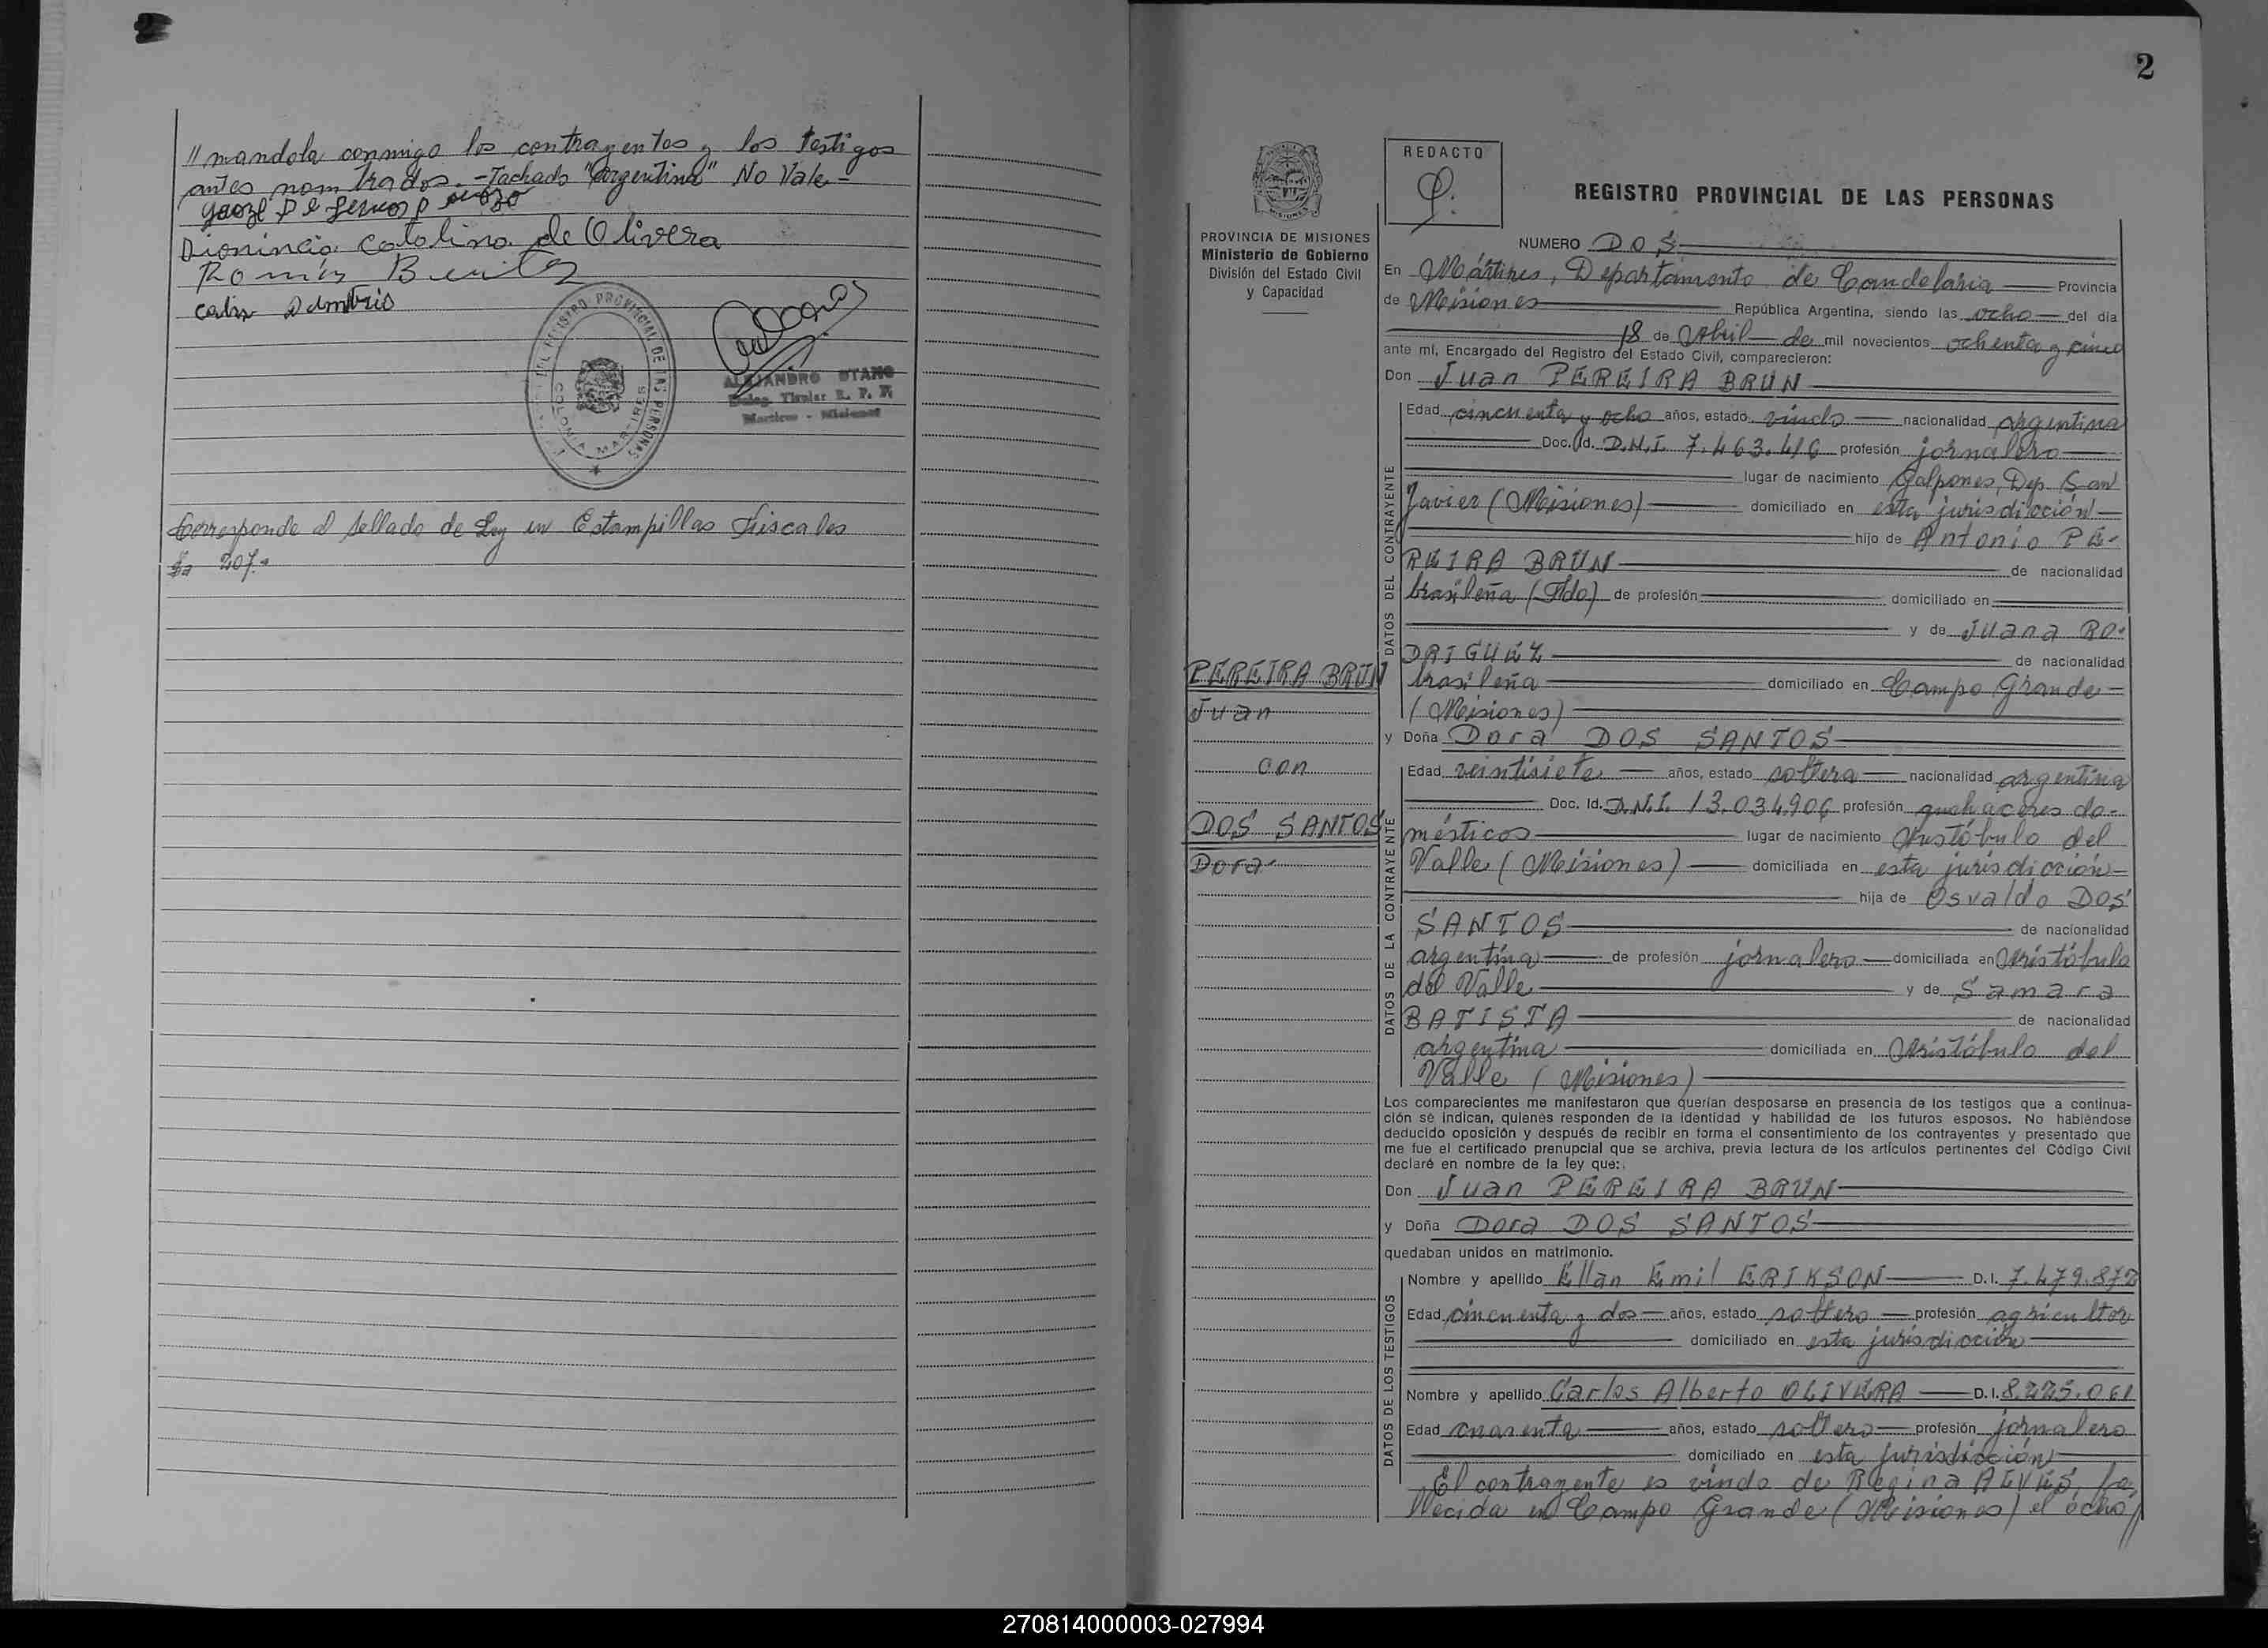 // mandola conmigo los contrayentes y los testigos
antes nombrados.-Tachado "argentina" No Vale-
Dionincia Catalina de Olivera
Román Benitez
Corresponde al sellado de Ley en Estampillas Fiscales
$a 207.-
ALEJANDRO STANG
Deleg. Titular R. P. P.
Martires - Misiones
REGISTRO PROVINCIAL DE LAS PERSONAS
COLONIA MARTIRES
2
REDACTO
REGISTRO PROVINCIAL DE LAS PERSONAS
PROVINCIA DE MISIONES
Ministerio de Gobierno
División del Estado Civil
y Capacidad
PEREIRA BRUN
Juan
con
DOS SANTOS
Dora
NUMERO DOS
En Mártires, Departamento de Candelaria Provincia
de Misiones República Argentina, siendo las ocho del día
18 de Abril de mil novecientos ochenta y cinco
ante mí, Encargado del Registro del Estado Civil, comparecieron:
Don Juan PEREIRA BRUN
DATOS DEL CONTRAYENTE
Edad cincuenta y ocho años, estado viudo nacionalidad argentina
Doc. Id. D.N.I. 7.463.416 profesión jornalero
lugar de nacimiento Galpones, Dep. San
Javier (Misiones) domiciliado en esta jurisdicción
hijo de Antonio PE-
REIRA BRUN de nacionalidad
brasileña (Fdo) de profesión domiciliado en
y de Juana RO-
DRIGUEZ de nacionalidad
brasileña domiciliado en Campo Grande
(Misiones)
y Doña Dora DOS SANTOS
DATOS DE LA CONTRAYENTE
Edad veintisiete años, estado soltera nacionalidad argentina
Doc. Id. D.N.I. 13.034.906 profesión quehaceres do-
mésticos lugar de nacimiento Aristóbulo del
Valle (Misiones) domiciliada en esta jurisdicción
hija de Osvaldo DOS
SANTOS de nacionalidad
argentina de profesión jornalero domiciliada en Aristóbulo
del Valle y de Samara
BATISTA de nacionalidad
argentina domiciliada en Aristóbulo del
Valle (Misiones)
Los comparecientes me manifestaron que querían desposarse en presencia de los testigos que a continua-
ción se indican, quienes responden de la identidad y habilidad de los futuros esposos. No habiéndose
deducido oposición y después de recibir en forma el consentimiento de los contrayentes y presentado que
me fue el certificado prenupcial que se archiva, previa lectura de los artículos pertinentes del Código Civil
declaré en nombre de la ley que:
Don Juan PEREIRA BRUN
y Doña Dora DOS SANTOS
quedaban unidos en matrimonio.
DATOS DE LOS TESTIGOS
Nombre y apellido Ellan Emil ERIKSON D.I. 7.479.872
Edad cincuenta y dos años, estado soltero profesión agricultor
domiciliado en esta jurisdicción
Nombre y apellido Carlos Alberto OLIVERA D.I. 8.225.061
Edad cuarenta años, estado soltero profesión jornalero
domiciliado en esta jurisdicción
El contrayente es viudo de Regina ALVES, fa-
llecida en Campo Grande (Misiones) el ocho//
270814000003-027994